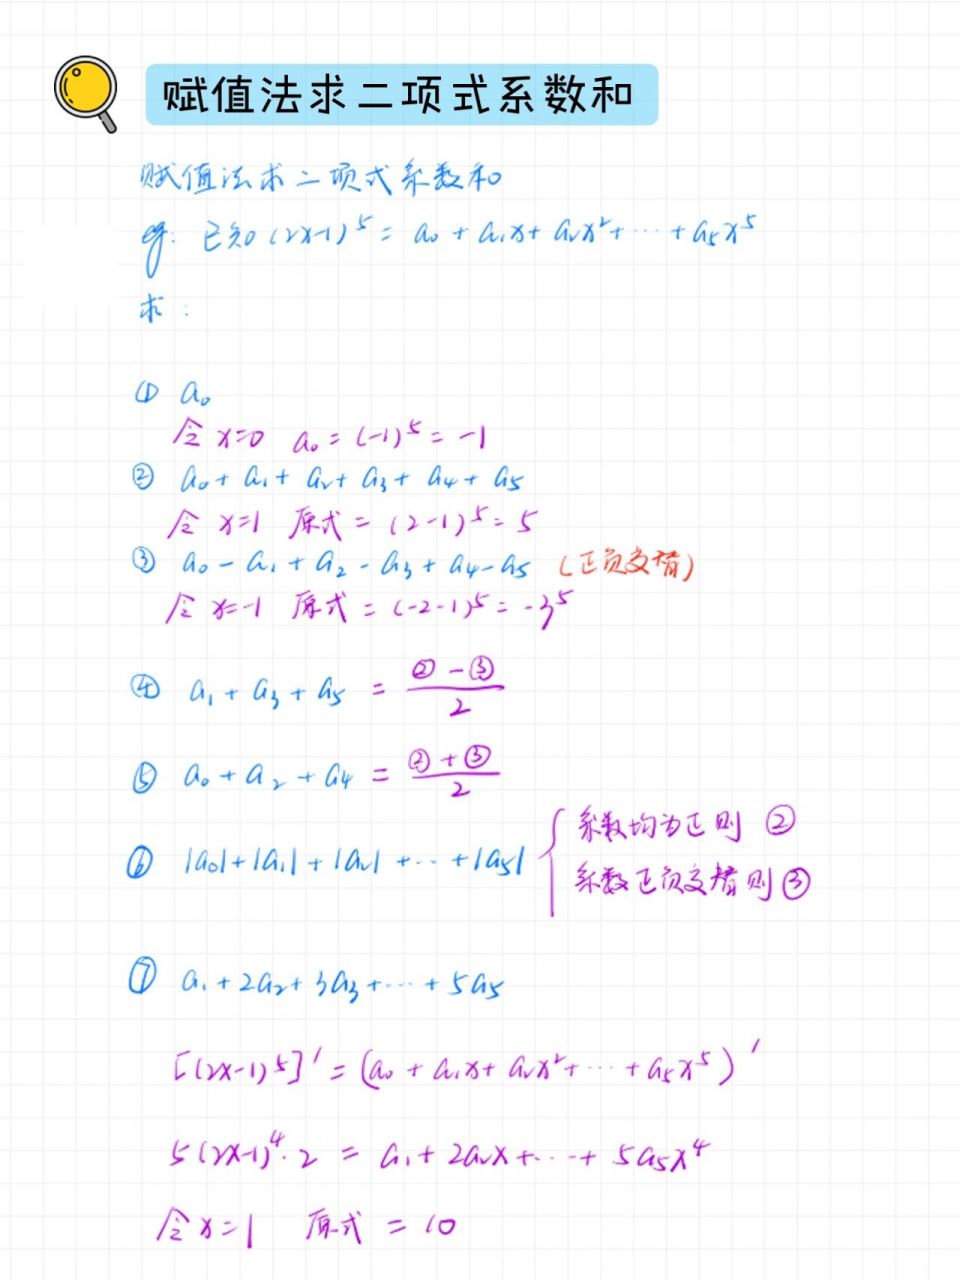 赋值法求二项式系数和
赋值法求二项式系数和
eg: 已知(2x-1)⁵ = a₀ + a₁x + a₂x² + ··· + a₅x⁵
求:
① a₀
令 x=0 a₀ = (-1)⁵ = -1
② a₀ + a₁ + a₂ + a₃ + a₄ + a₅
令 x=1 原式 = (2-1)⁵ = 5
③ a₀ - a₁ + a₂ - a₃ + a₄ - a₅ (正负交错)
令 x=-1 原式 = (-2-1)⁵ = -3⁵
④ a₁ + a₃ + a₅ = (② - ③)/2
⑤ a₀ + a₂ + a₄ = (② + ③)/2
⑥ |a₀| + |a₁| + |a₂| + ··· + |a₅| { 系数均为正则 ②
系数正负交错则 ③
⑦ a₁ + 2a₂ + 3a₃ + ··· + 5a₅
[(2x-1)⁵]' = (a₀ + a₁x + a₂x² + ··· + a₅x⁵)'
5(2x-1)⁴·2 = a₁ + 2a₂x + ··· + 5a₅x⁴
令 x=1 原式 = 10